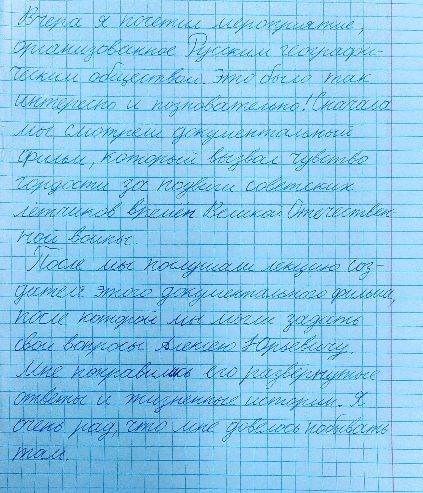 Вчера я посетил мероприятие,
организованное Русским географи-
ческим обществом. Это было так
интересно и познавательно! Сначала
мы смотрели документальный
фильм, который вызвал чувство
гордости за подвиги советских
лётчиков времён Великой Отечествен
ной войны.
После мы послушали лекцию соз-
дателя этого документального фильма,
после которой мы могли задать
свои вопросы Алексею Юрьевичу.
Мне понравились его развёрнутые
ответы и жизненные истории. Я
очень рад, что мне довелось побывать
там.